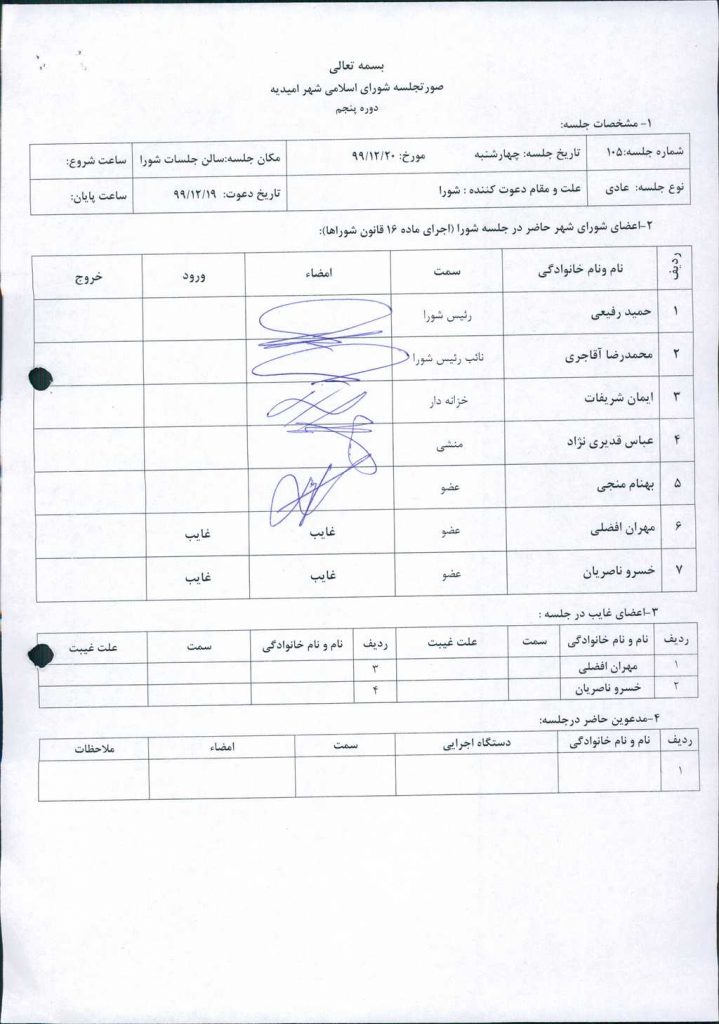 بسمه تعالی
صورتجلسه شورای اسلامی شهر امیدیه
دوره پنجم
۱- مشخصات جلسه:
شماره جلسه:۱۰۵ تاریخ جلسه: چهارشنبه مورخ: ۹۹/۱۲/۲۰ مکان جلسه:سالن جلسات شورا ساعت شروع:
نوع جلسه: عادی علت و مقام دعوت کننده : شورا تاریخ دعوت: ۹۹/۱۲/۱۹ ساعت پایان:
۲-اعضای شورای شهر حاضر در جلسه شورا (اجرای ماده ۱۶ قانون شوراها):
ردیف نام ونام خانوادگی سمت امضاء ورود خروج
۱ حمید رفیعی رئیس شورا
۲ محمدرضا آقاجری نائب رئیس شورا
۳ ایمان شریفات خزانه دار
۴ عباس قدیری نژاد منشی
۵ بهنام منجی عضو
۶ مهران افضلی عضو غایب غایب
۷ خسرو ناصریان عضو غایب غایب
۳-اعضای غایب در جلسه :
ردیف نام و نام خانوادگی سمت علت غیبت ردیف نام و نام خانوادگی سمت علت غیبت
۱ مهران افضلی ۳
۲ خسرو ناصریان ۴
۴-مدعوین حاضر درجلسه:
ردیف نام و نام خانوادگی دستگاه اجرایی سمت امضاء ملاحظات
۱